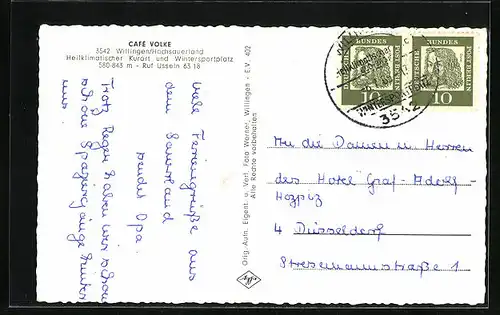 CAFÉ VOLKE
3542 Willingen/Hochsauerland
Heilklimatischer Kurort und Wintersportplatz
580-848 m - Ruf Usseln 63 18
viele Feriengrüße aus
dem Sauerland
sendet Opa.
Trotz Regen haben wir schon
schöne Spaziergänge hinter
uns.
Orig.-Aufn. Eigent. u. Verl. Foto Werner, Willingen - E.V. 402
Alle Rechte vorbehalten
Agfa
BUNDES
POST BERLIN
DEUTSCHE
BUNDES
POST BERLIN
10
3542
An die Damen u. Herren
des Hotel Graf-Adolf-
Hospiz
4 Düsseldorf
Stresemannstraße 1